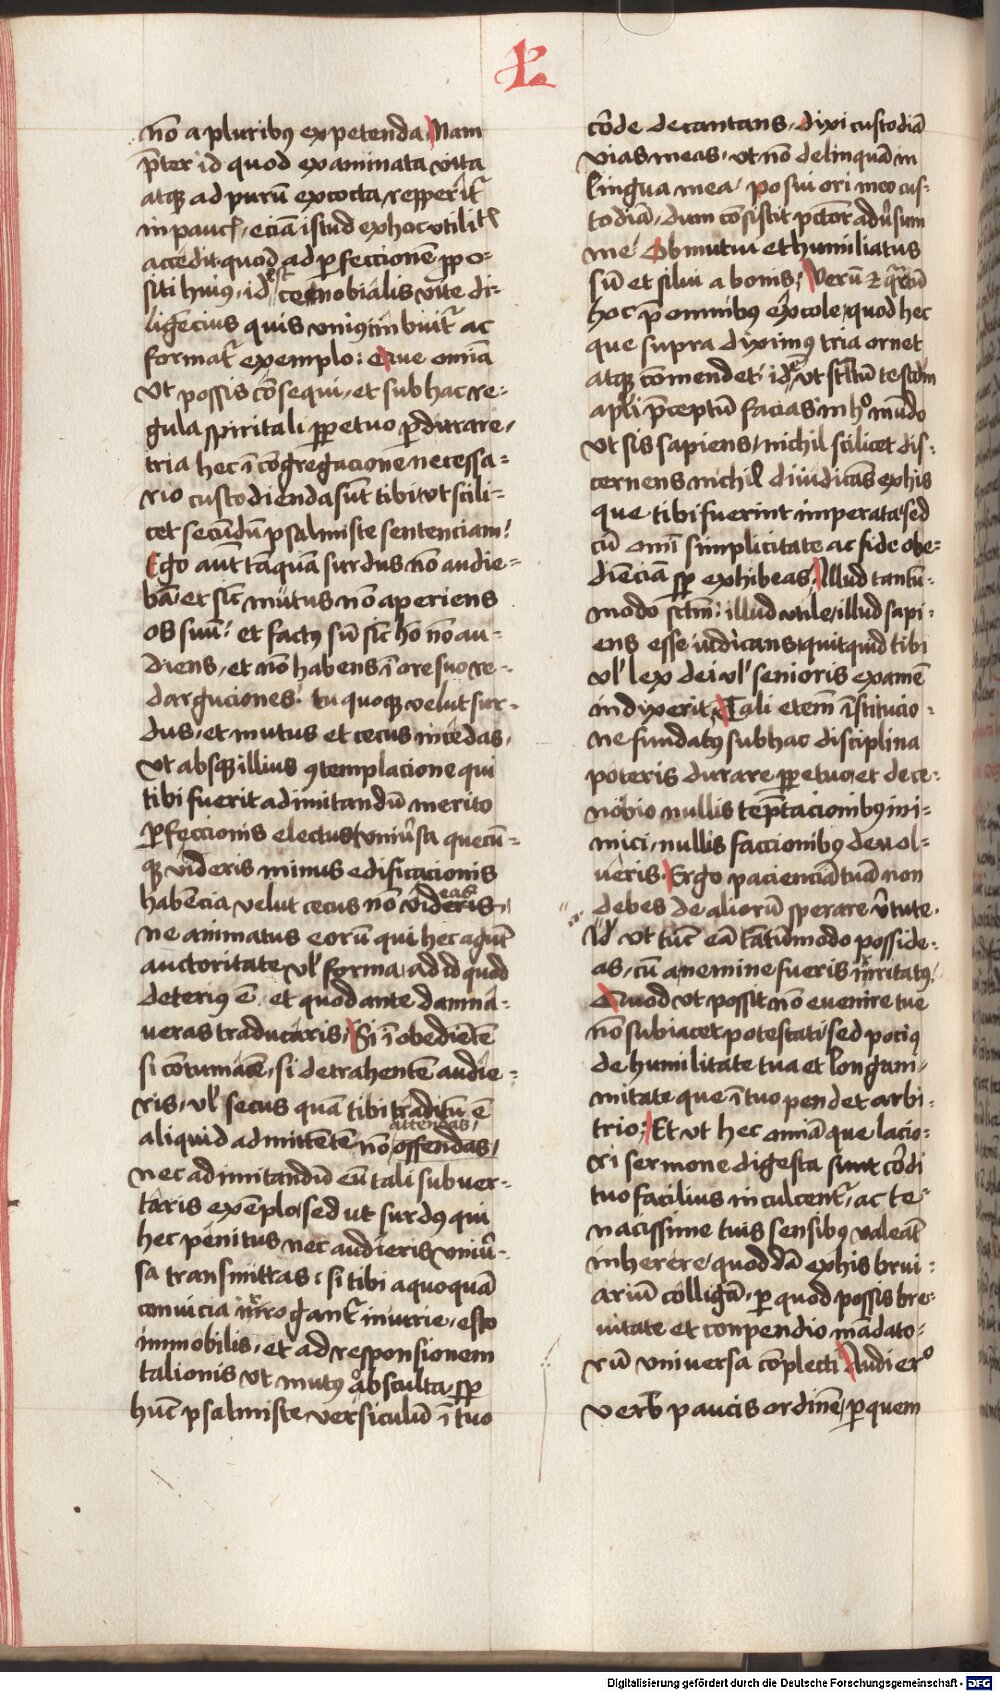 nō a pluribꝰ expetenda Nam
p̄ter id quod examinata vita
atqꝫ ad purū excocta repperit᷑
in paucꝭ, eciā istud ex hoc vtilitꝭ
accedit quod ad ꝑfeccionē ꝓpo-
siti huiꝰ, id est cenobialis vite di-
ligēcius quis vniꝰ imbuit᷑ ac
format᷑ exemplo: Que om̄ia
vt possis cōsequi, et sub hac re-
gula spiritali ꝑpetuo ꝑdurare,
tria hec ī cōgregacione necessa-
rio custodienda sūt tibi vt scili-
cet secūdū psalmiste sentenciam:
Ego aūt tāquā surdus nō audie-
bā, et sic̄ mutus nō aperiens
os suū: et factꝰ sū sic̄ hō nō au-
diens, et nō habens ī ore suo re-
darguciones: tu quoqꝫ velut sur-
dus, et mutus et cecus incedas,
vt absqꝫ illius ꝯtemplacione qui
tibi fuerit ad imitandū merito
ꝑfeccionis electus vniūsa quecū-
qꝫ videris minus edificacionis
habēcia velut cecus nō videris
eas
ne animatus eorū qui hec agūt
auctoritate vl̕ forma, ad id quod
deteriꝰ ē et quod ante damna-
ueras traducaris, Si ī obediētē
si cōtumacē, si detrahentē audie-
ris, vl̕ secus quā tibi traditū ē
attendas,
aliquid admittētē nō offendas,
nec ad imitandū eū tali subuer-
taris exēplo, sed ut surdꝰ qui
hec penitus nec audieris vniū-
sa transmittas: si tibi a quoquā
conuicia irrogant᷑ iniurie, esto
immobilis, et ad responsionem
talionis vt mutꝰ absculta, sꝑ
hūc psalmiste versiculū ī tuo
corde decantans, dixi custodiā
vias meas, vt nō delinquā in
lingua mea, posui ori meo cus-
todiā, dum cōsistit pctōr adūsum
me Obmutui et humiliatus
sū et silui a bonis, Verū et quartū
hoc p̄ omnibꝰ excole, quod hec
que supra diximꝰ tria ornet
atqꝫ cōmendet, id est vt stultū te scdm
apli p̄ceptū facias in hͦ mūdo
vt sis sapiens, nichil scilicet dis-
cernens nichil diiudicās ex his
que tibi fuerint imperata, sed
cū omī simplicitate ac fide obe-
diēciā sꝑ exhibeas, Illud tantū-
modo sctm̄: illud vtile, illud sapi-
ens esse iudicans quitquid tibi
vl̕ lex dei vl̕ senioris examē
indixerit, Tali etem̄ īstitucio-
ne fundatꝰ sub hac disciplina
poteris durare ꝑpetuo, et de ce-
nobio nullis tēptacionibꝰ ini-
mici, nullis faccionibꝰ deuol-
ueris, Ergo pacienciā tuā non
debes de aliorū sperare v̄tute,
Id vt tūc eā tātūmodo posside-
as, cū a nemine fueris irritatꝰ,
Quod vt possit nō euenire tue
nō subiacet potestati, sed pociꝰ
de humilitate tua et longani-
mitate que ī tuo pendet arbi-
trio, Et vt hec om̄ia que lacio-
ri sermone digesta sunt cordi
tuo facilius inculcent᷑, ac te-
nacissime tuis sensibꝰ valeāt
inherere, quoddā ex his breui-
ariū colligā, ꝑ quod possis bre-
uitate et conpendio mādato-
rū vniuersa cōplecti Audi ergͦ
verb̄ paucis ordinē, ꝑ quem
Digitalisierung gefördert durch die Deutsche Forschungsgemeinschaft - DFG